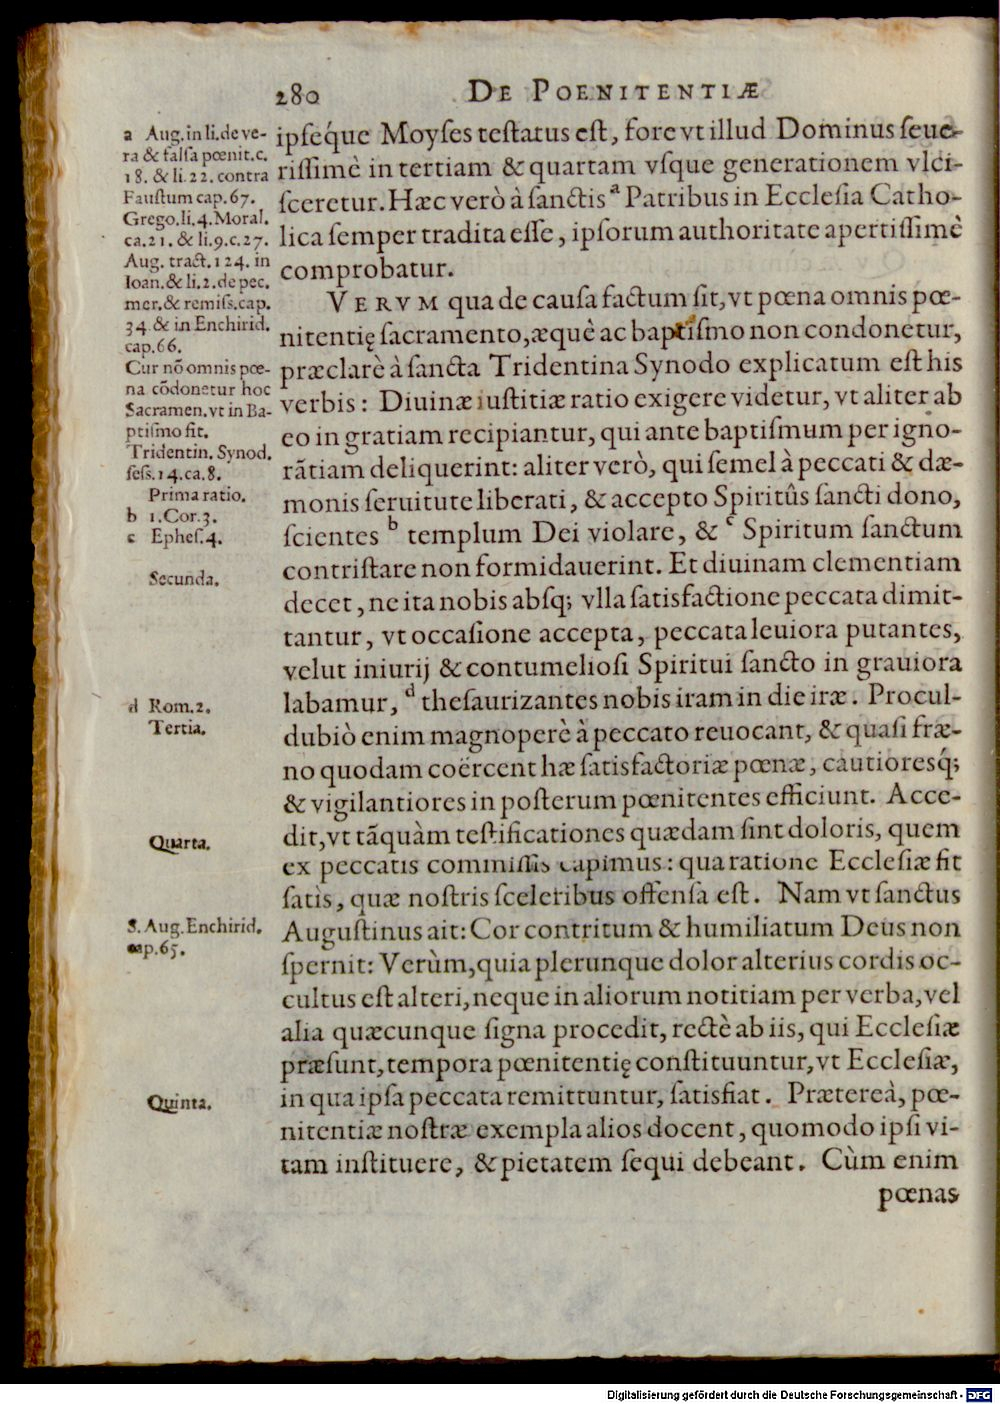 280 DE POENITENTIÆ
a Aug. in li. de ve-
ra & falsa pœnit. c.
18. & li. 22. contra
Faustum cap. 67.
Grego. li. 4. Moral.
ca. 21. & li. 9. c. 27.
Aug. tract. 124. in
Ioan. & li. 2. de pec.
mer. & remiss. cap.
34. & in Enchirid.
cap. 66.
Cur nõ omnis pœ-
na cõdonetur hoc
Sacramen. vt in Ba-
ptismo fit.
Tridentin. Synod.
sess. 14. ca. 8.
Prima ratio.
b 1. Cor. 3.
c Ephes. 4.
Secunda.
d Rom. 2.
Tertia.
Quarta.
S. Aug. Enchirid.
cap. 65.
Quinta.
ipséque Moyses testatus est, fore vt illud Dominus seue-
rissimè in tertiam & quartam vsque generationem vlci-
sceretur. Hæc verò à sanctis a Patribus in Ecclesia Catho-
lica semper tradita esse, ipsorum authoritate apertissimè
comprobatur.
VERVM qua de causa factum sit, vt pœna omnis pœ-
nitentię sacramento, æquè ac baptismo non condonetur,
præclarè à sancta Tridentina Synodo explicatum est his
verbis: Diuinæ iustitiæ ratio exigere videtur, vt aliter ab
eo in gratiam recipiantur, qui ante baptismum per igno-
rãtiam deliquerint: aliter verò, qui semel à peccati & dæ-
monis seruitute liberati, & accepto Spiritûs sancti dono,
scientes b templum Dei violare, & c Spiritum sanctum
contristare non formidauerint. Et diuinam clementiam
decet, ne ita nobis absq; vlla satisfactione peccata dimit-
tantur, vt occasione accepta, peccata leuiora putantes,
velut iniurij & contumeliosi Spiritui sancto in grauiora
labamur, d thesaurizantes nobis iram in die iræ. Procul-
dubiò enim magnoperè à peccato reuocant, & quasi fræ-
no quodam coërcent hæ satisfactoriæ pœnæ, cautioresq́;
& vigilantiores in posterum pœnitentes efficiunt. Acce-
dit, vt tãquàm testificationes quædam sint doloris, quem
ex peccatis commissis capimus: qua ratione Ecclesiæ fit
satìs, quæ nostris sceleribus offensa est. Nam vt sanctus
Augustinus ait: Cor contritum & humiliatum Deus non
spernit: Verùm, quia plerunque dolor alterius cordis oc-
cultus est alteri, neque in aliorum notitiam per verba, vel
alia quæcunque signa procedit, rectè ab iis, qui Ecclesiæ
præsunt, tempora pœnitentię constituuntur, vt Ecclesiæ,
in qua ipsa peccata remittuntur, satisfiat. Prætereà, pœ-
nitentiæ nostræ exempla alios docent, quomodo ipsi vi-
tam instituere, & pietatem sequi debeant. Cùm enim
pœnas
Digitalisierung gefördert durch die Deutsche Forschungsgemeinschaft - DFG